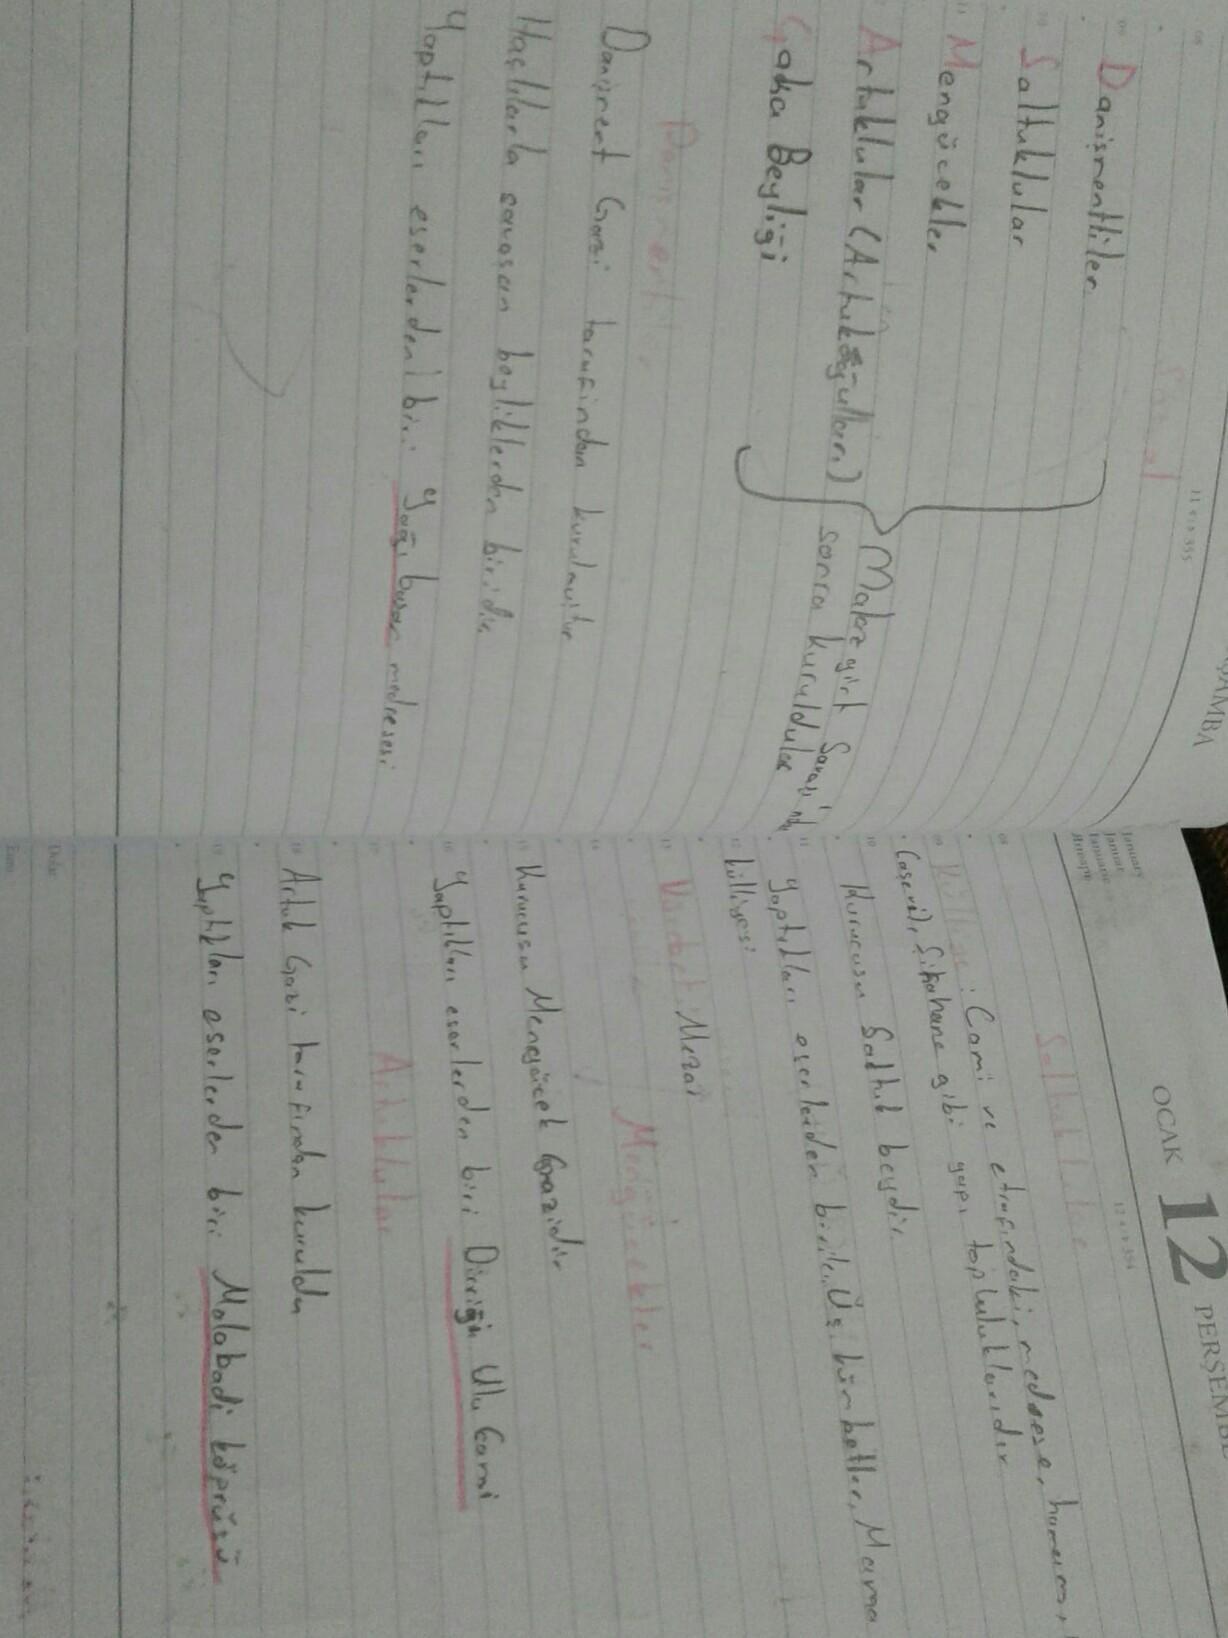 Danişmentliler
Saltuklular
Mengücekler
Artuklular (Artukoğulları)
Çaka Beyliği
Malazgirt Savaşı'ndan
sonra kuruldular
Danişmentliler
Danişment Gazi tarafından kurulmuştur
Haçlılarla savaşan beyliklerden biridir
Yaptıkları eserlerden biri Yağıbasan medresesi
January
Januar
OCAK 12 PERŞEMBE
12 + 353
Saltuklular
Külliye: Cami ve etrafındaki, medrese, hamam,
Çaşevi, Şifahane gibi yapı topluluklarıdır
Kurucusu Saltuk beydir
Yaptıkları eserlerden birileri Üç kümbetler, Mama
külliyesi
Mezar
Mengücekler
Kurucusu Mengücek Gazidir
Yaptıkları eserlerden biri Divriği Ulu Cami
Artuklular
Artuk Gazi tarafından kuruldu
Yaptıkları eserlerden biri Malabadi köprüsü